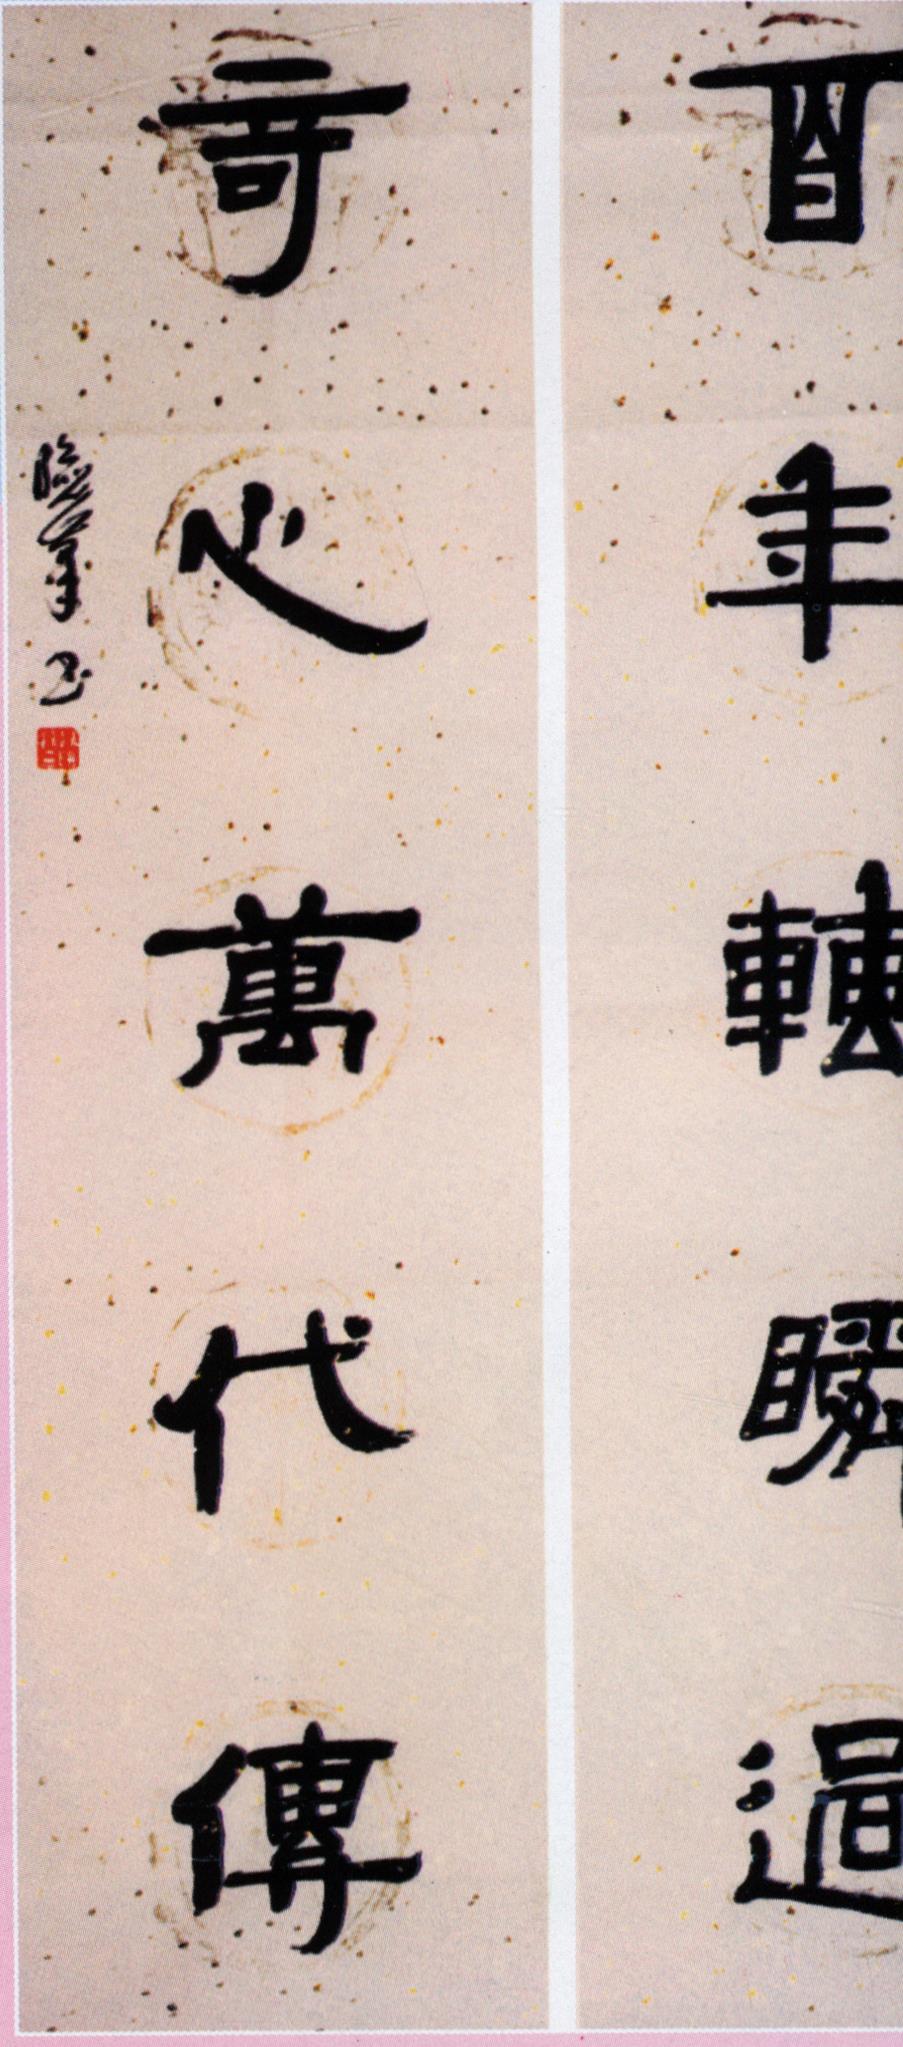 百年轉瞬過
奇心萬代傳
书